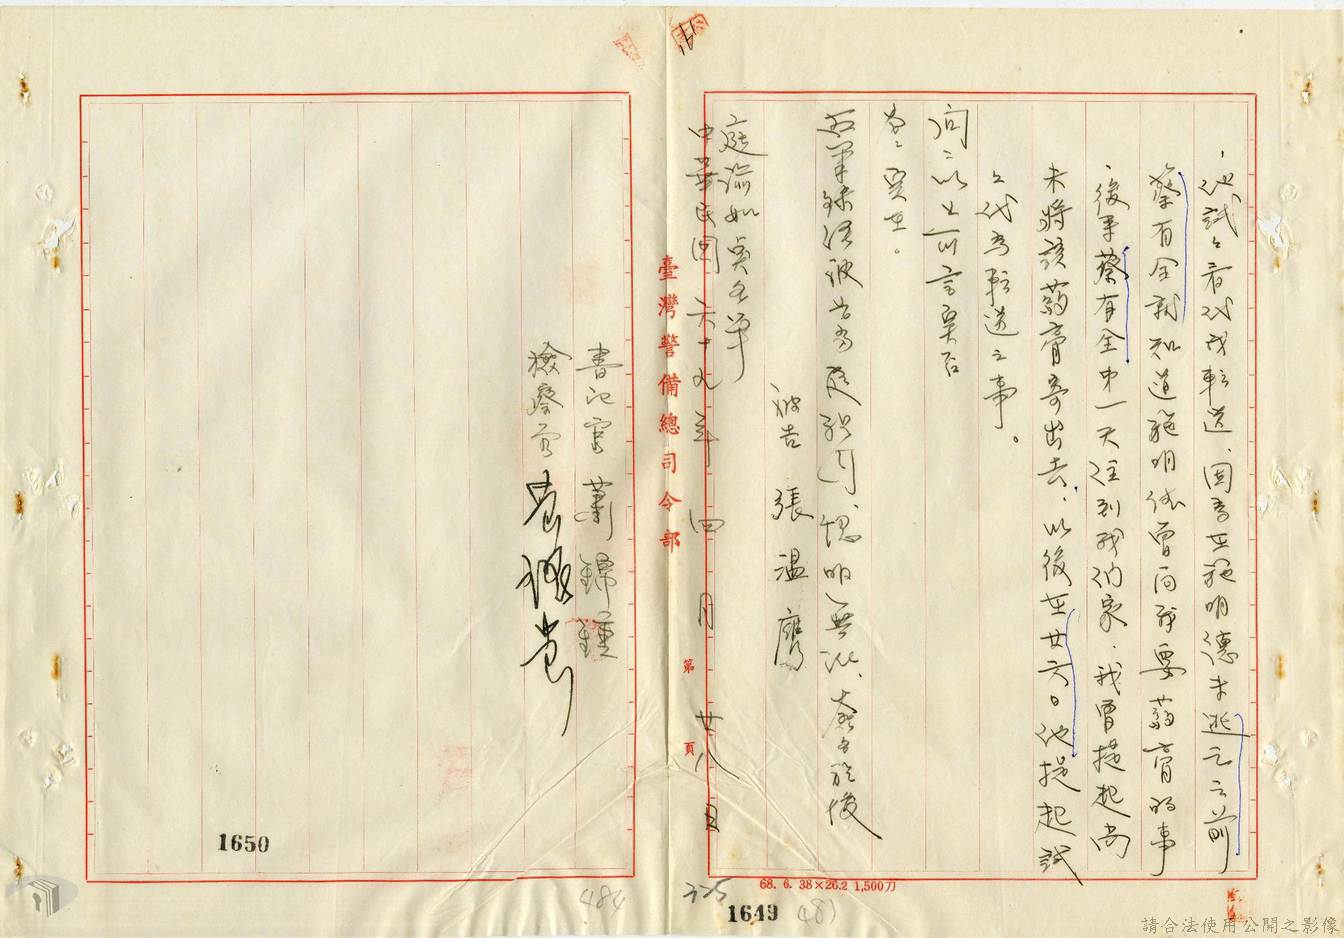 他試試看代我轉送、因為在施明德未逃亡之前
蔡有全就知道施明德曾向我要藥膏的事
、後來蔡有全中一天往到我們家、我曾提起尚
未將該藥膏寄出去、以後在廿六日他提起試
試代為轉送之事。
問：以上所言實否
答：實在。
右筆錄經被告當庭親閱、認明無訛、簽名於後
被告 張溫鷹
庭諭如具名單
中華民國六十九年四月廿八日
臺灣警備總司令部
第 頁
書記官 蕭錦鍾
檢察官
68. 6. 38×26.2 1,500刀
1649
481
1650
484
請合法使用公開之影像